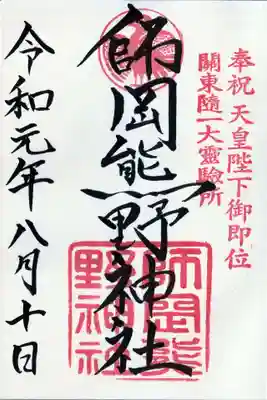 奉祝 天皇陛下御即位
關東隨一大靈驗所
師岡熊野神社
令和元年八月十日
師岡熊
野神社